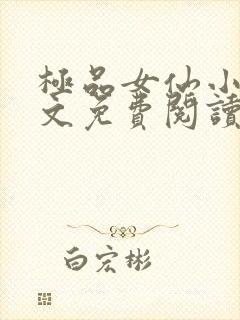 極品女仙小
文免費閱讀
白宏彬